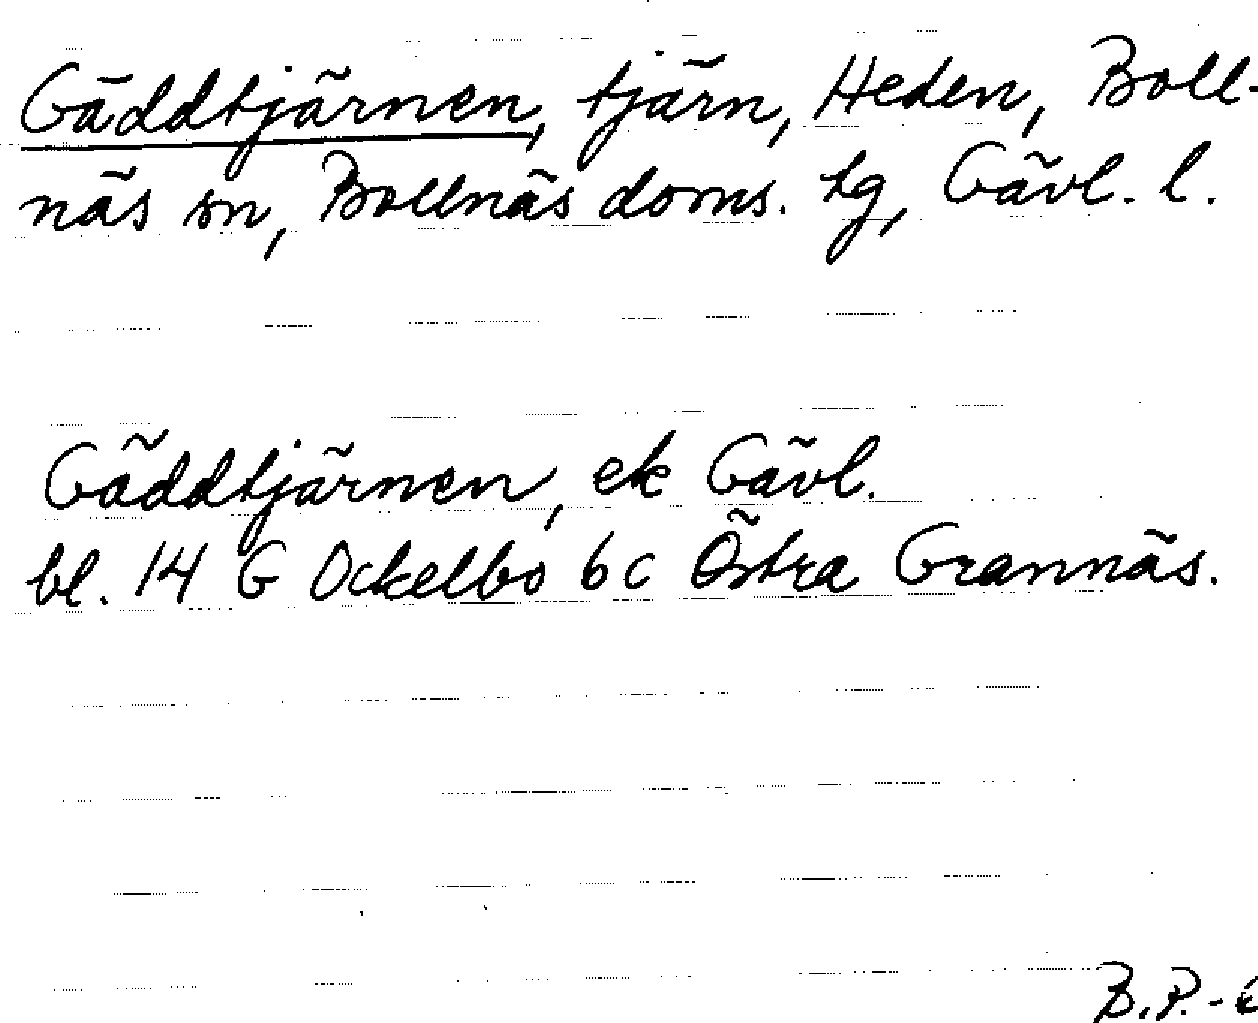 Gäddtjärnen, tjärn, Heden, Boll-
näs sn, Bollnäs doms. tg, Gävl. l.
Gäddtjärnen, ek Gävl.
bl. 14 G Ockelbo 6c Östra Grannäs.
B.P.-